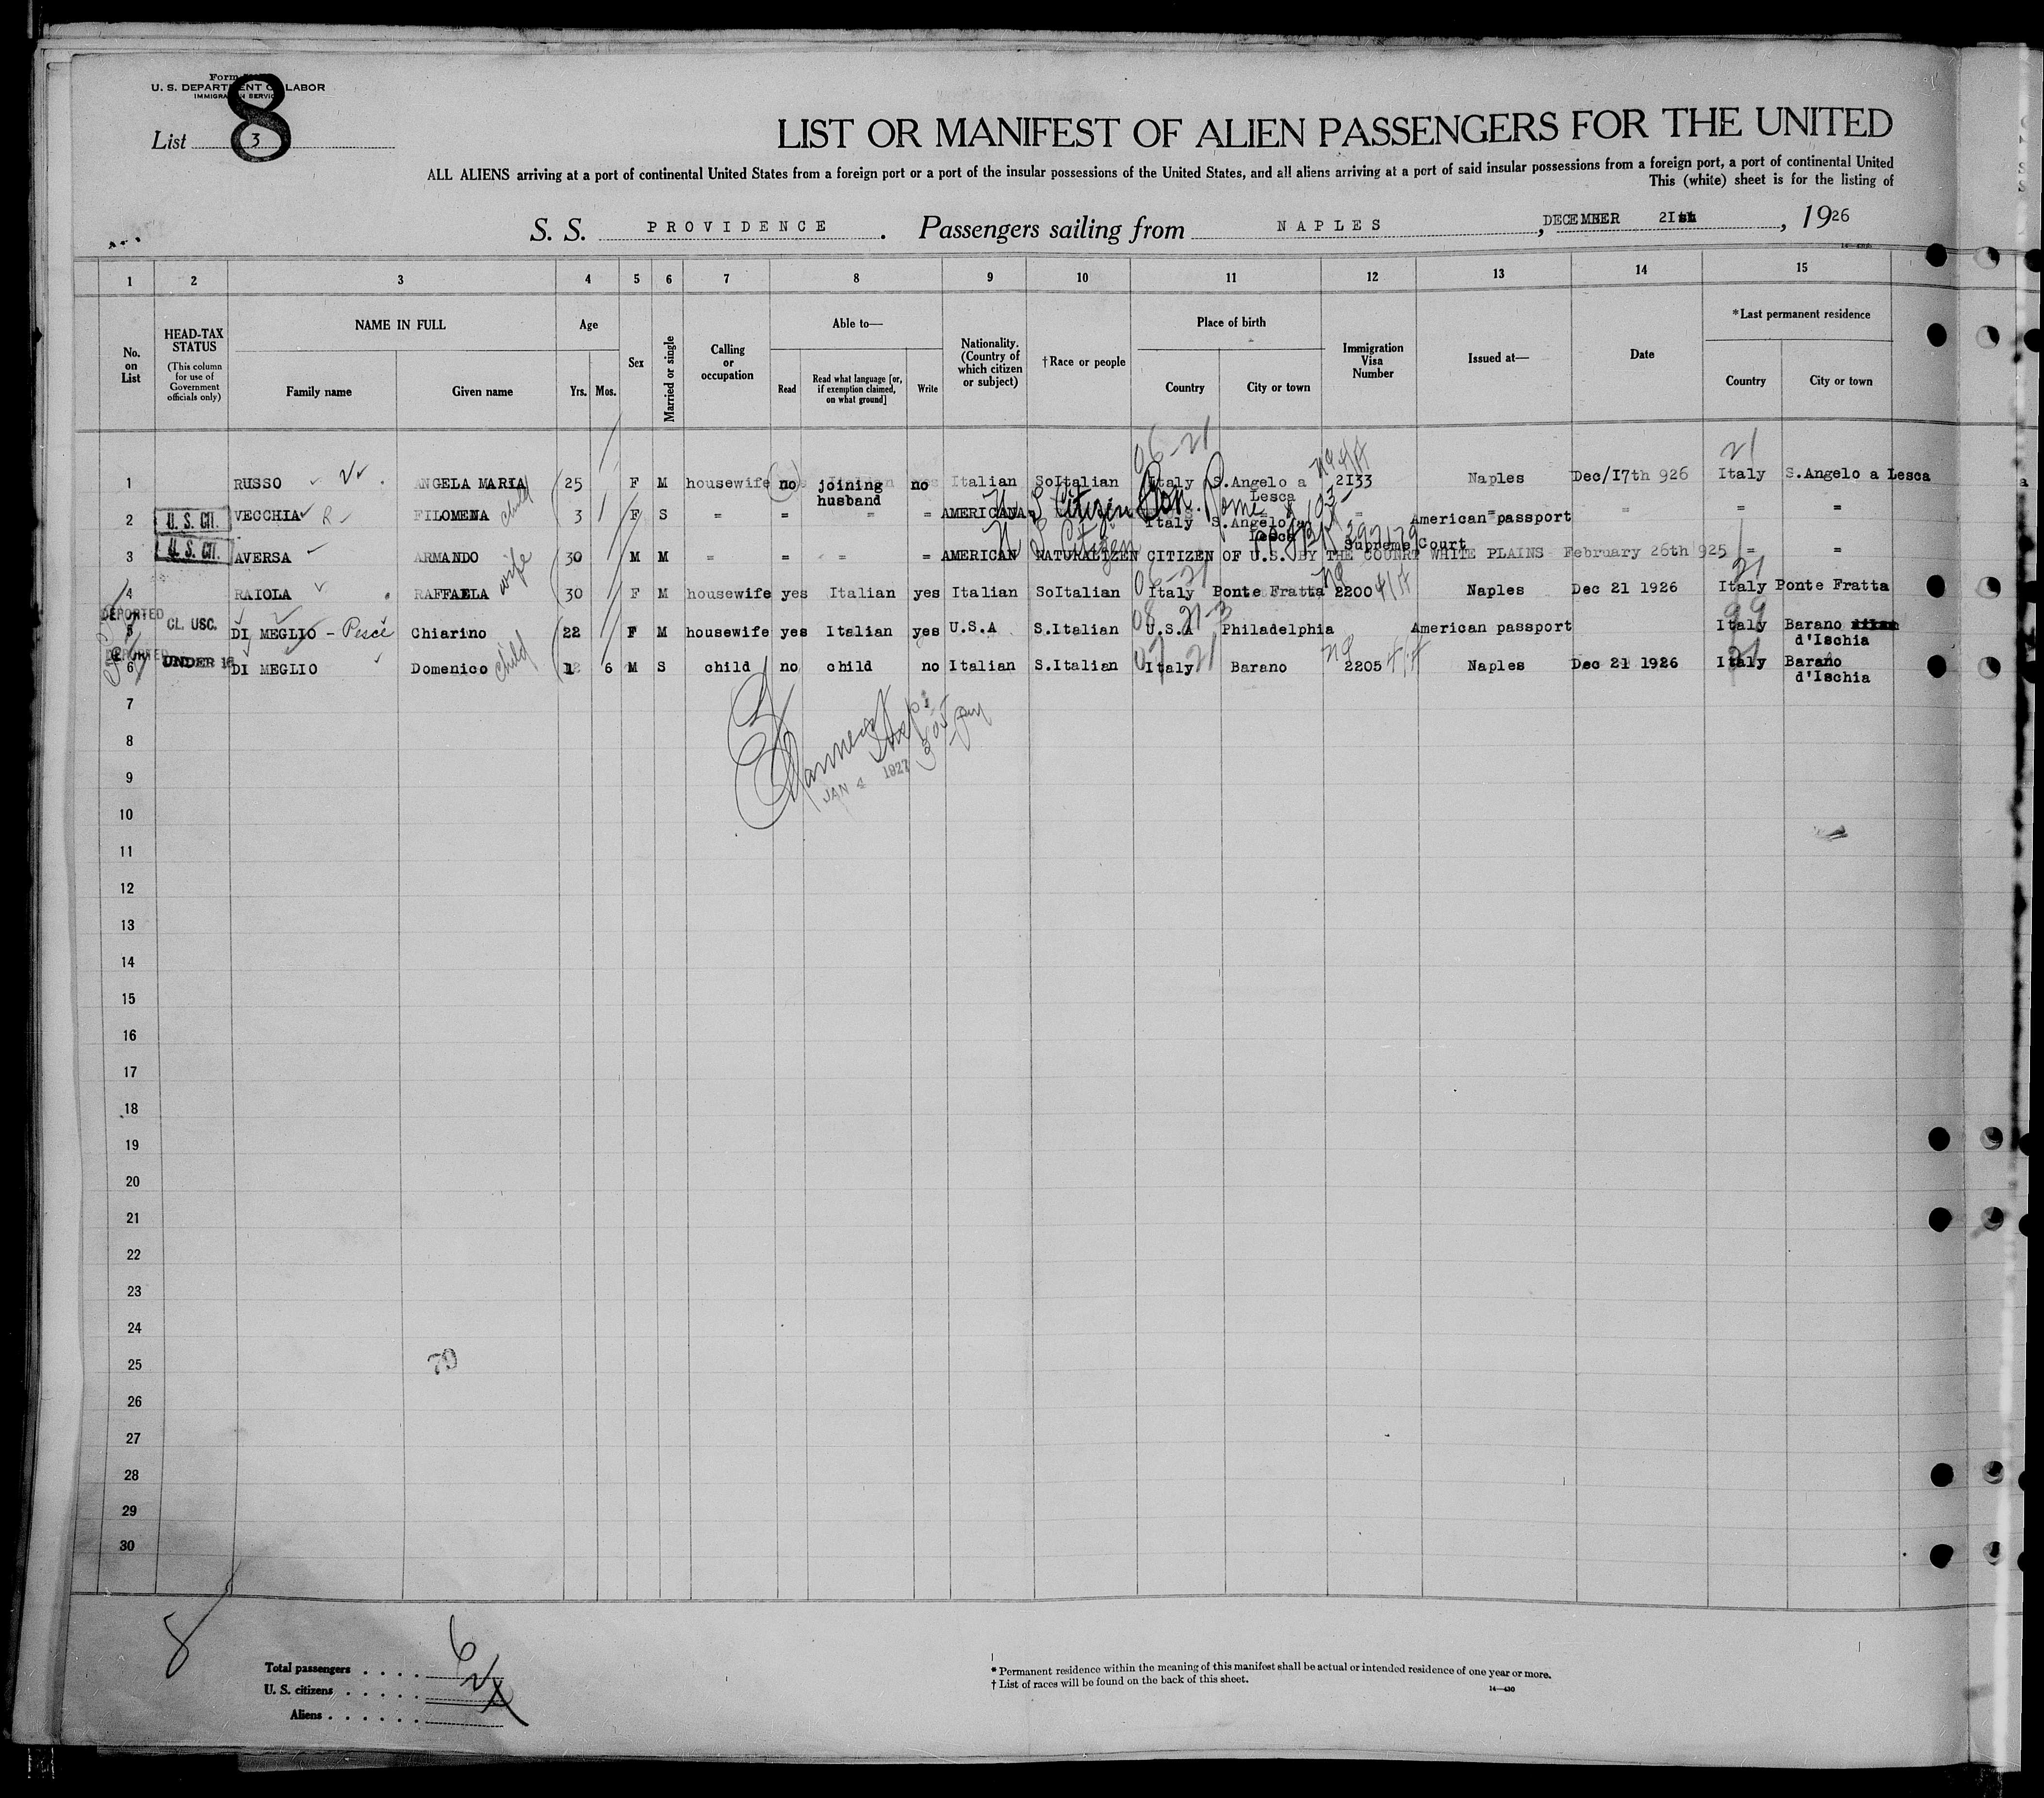 Form
U. S. DEPARTMENT OF LABOR
IMMIGRATION SERVICE
8
List 3
LIST OR MANIFEST OF ALIEN PASSENGERS FOR THE UNITED
ALL ALIENS arriving at a port of continental United States from a foreign port or a port of the insular possessions of the United States, and all aliens arriving at a port of said insular possessions from a foreign port, a port of continental United
This (white) sheet is for the listing of
S. S. PROVIDENCE . Passengers sailing from NAPLES , DECEMBER 21 , 1926
1 2 3 4 5 6 7 8 9 10 11 12 13 14 15
No. on List
HEAD-TAX STATUS
(This column for use of Government officials only)
NAME IN FULL
Family name Given name
Age
Yrs. Mos.
Sex
Married or single
Calling or occupation
Able to—
Read
Read what language [or, if exemption claimed, on what ground]
Write
Nationality. (Country of which citizen or subject)
†Race or people
Place of birth
Country City or town
Immigration Visa Number
Issued at—
Date
*Last permanent residence
Country City or town
06-21 21
1 RUSSO ANGELA MARIA 25 F M housewife no joining husband no Italian SoItalian Italy S.Angelo a Lesca 2I33 Naples Dec/I7th 926 Italy S.Angelo a Lesca
2 U. S. CIT. VECCHIA FILOMENA child 3 F S = = = = AMERICANA U S Citizen Con. Rome Italy S.Angelo Lesca = American passport = = =
3 U. S. CIT. AVERSA ARMANDO 30 M M = = = = AMERICAN NATURALIZEN CITIZEN OF U.S. BY THE COUNRT WHITE PLAINS February 26th 925 = =
U S Citizen Supreme Court
4 RAIOLA RAFFAELA wife 30 F M housewife yes Italian yes Italian SoItalian Italy Ponte Fratta 2200 Naples Dec 21 1926 Italy Ponte Fratta
DEPORTED
5 CL. USC. DI MEGLIO - Pesce Chiarino 22 F M housewife yes Italian yes U.S.A S.Italian U.S.A Philadelphia American passport Italy Barano d'Ischia
DEPORTED
6 UNDER 16 DI MEGLIO Domenico child 1 6 M S child no child no Italian S.Italian Italy Barano 2205 Naples Dec 21 1926 Italy Barano d'Ischia
7
8
JAN 4 1927
9
10
11
12
13
14
15
16
17
18
19
20
21
22
23
24
25
79
26
27
28
29
30
8
Total passengers . . . . 6
U. S. citizens . . . . .
Aliens . . . . . .
* Permanent residence within the meaning of this manifest shall be actual or intended residence of one year or more.
† List of races will be found on the back of this sheet.
14—430